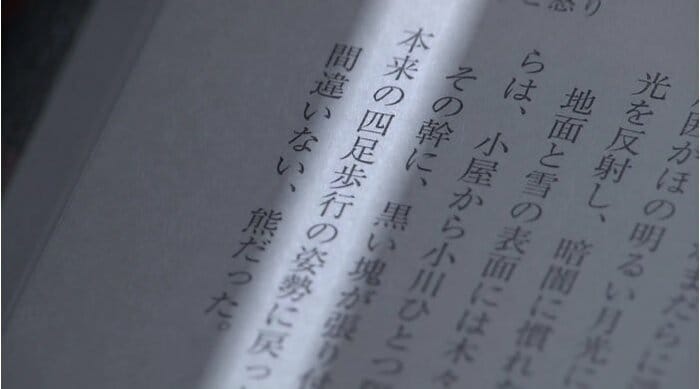 まだらに
がほの明るい月光に
光を反射し、暗闇に慣れ
地面と雪の表面には木々
らは、小屋から小川ひとつ
その幹に、黒い塊が張り付
本来の四足歩行の姿勢に戻っ
間違いない、熊だった。